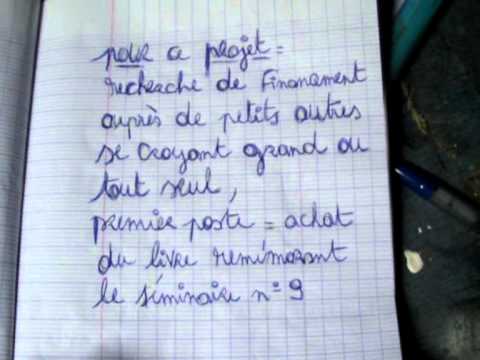 pour a projet =
recherche de Financement
auprès de petits autres
se croyant grand ou
tout seul,
premier poste = achat
du livre remémorant
le séminaire n° 9